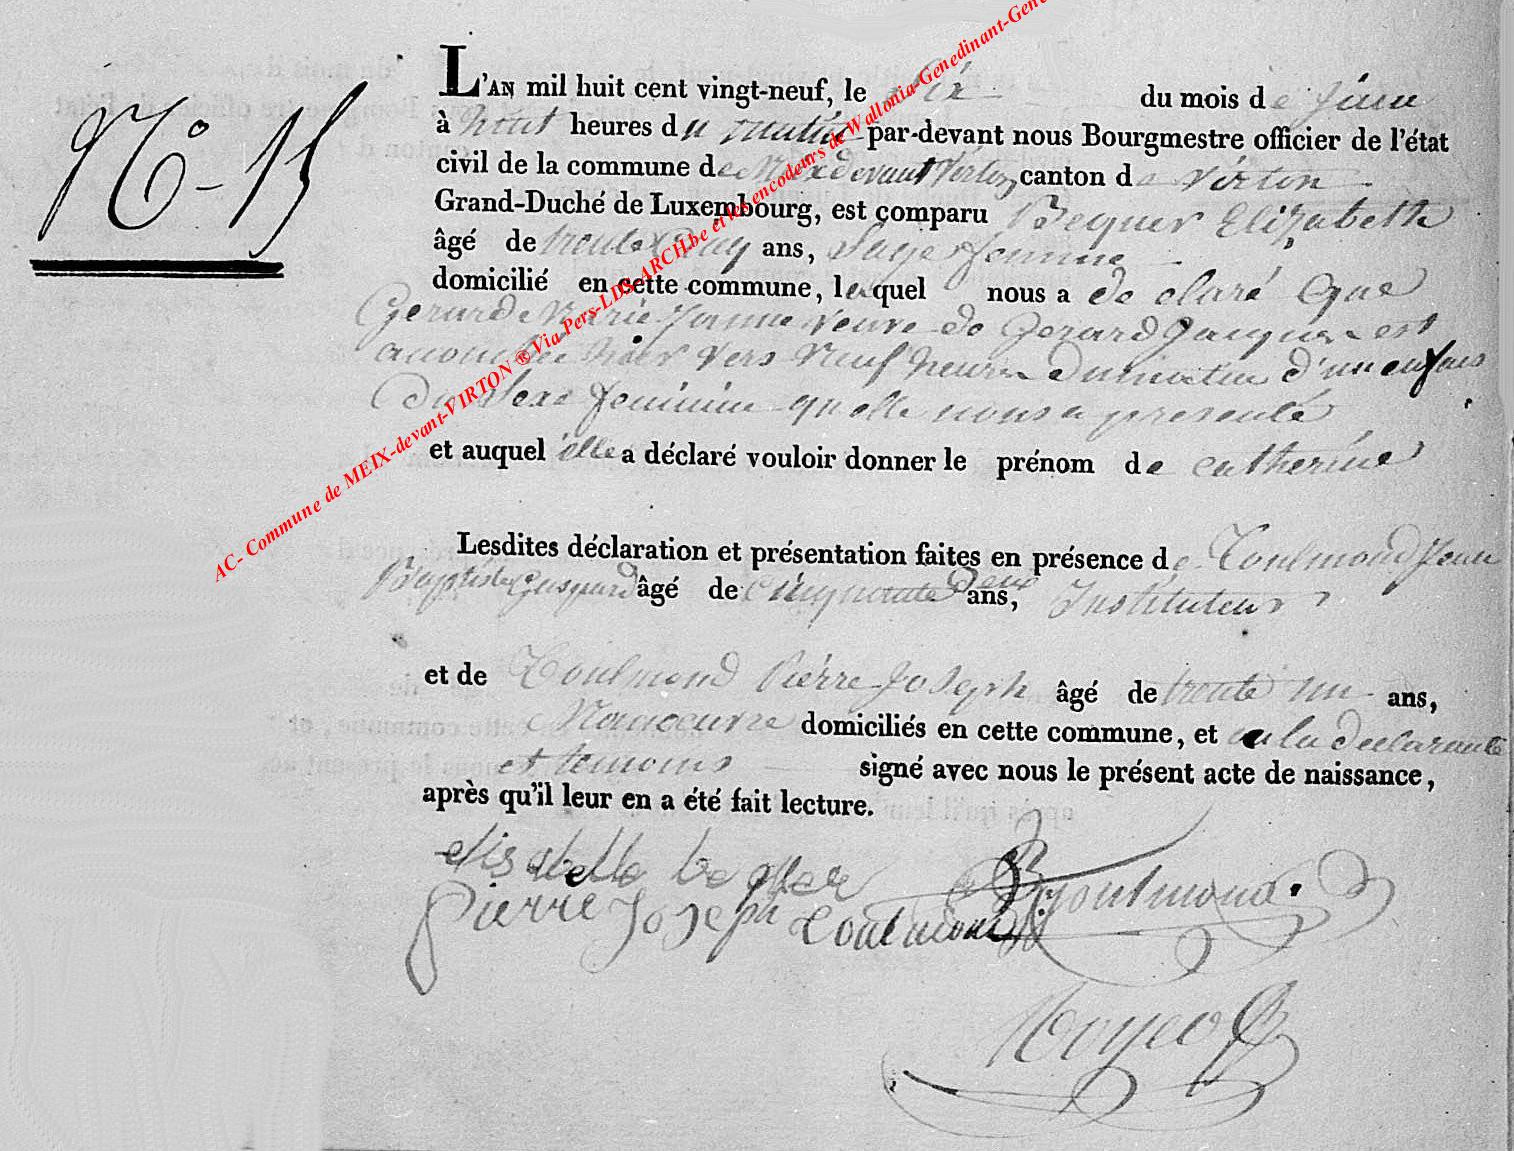 N° 15
L'AN mil huit cent vingt-neuf, le dix du mois de juin
à huit heures du matin par-devant nous Bourgmestre officier de l'état
civil de la commune de Meix devant Virton canton de virton
Grand-Duché de Luxembourg, est comparu Bequer Elizabeth
âgé de trente ans, Sage femme
domicilié en cette commune, lequel nous a de claré que
Gerard Marie Jeanne veuve de Gerard Jacques est
accouchée hier vers neuf heures du matin d'un enfans
Du Sexe feminin quelle nous a presenté
et auquel elle a déclaré vouloir donner le prénom de catherine
Lesdites déclaration et présentation faites en présence de Toulmond Jean
Baptiste Gaspard âgé de cinquante Deux ans, Instituteur
et de Toulmond Pierre Joseph âgé de trente un ans,
Manoeuvre domiciliés en cette commune, et la declarante
et temoins signé avec nous le présent acte de naissance,
après qu'il leur en a été fait lecture.
elisabette
Pierre Joseph toulmond
Toulmond
AC- Commune de MEIX-devant-VIRTON ® Via Pers-LDS-ARCH.be et les encodeurs de Wallonia-Genedinant-Gene